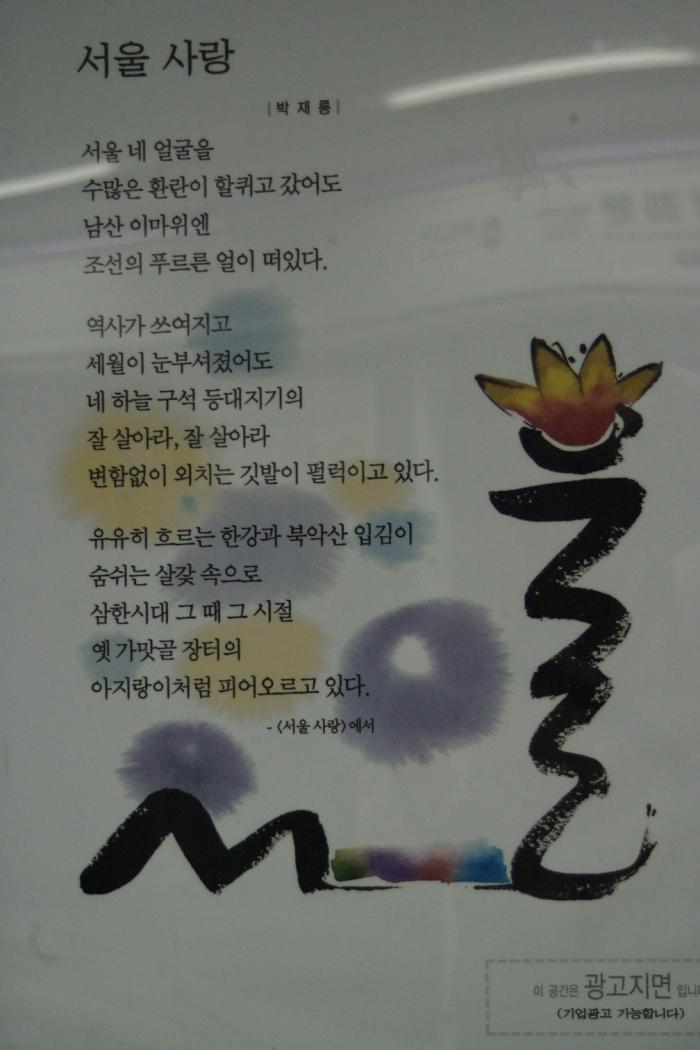 서울 사랑
|박 재 릉|
서울 네 얼굴을
수많은 환란이 할퀴고 갔어도
남산 이마위엔
조선의 푸르른 얼이 떠있다.
역사가 쓰여지고
세월이 눈부셔졌어도
네 하늘 구석 등대지기의
잘 살아라, 잘 살아라
변함없이 외치는 깃발이 펄럭이고 있다.
유유히 흐르는 한강과 북악산 입김이
숨쉬는 살갗 속으로
삼한시대 그 때 그 시절
옛 가맛골 장터의
아지랑이처럼 피어오르고 있다.
- 〈서울 사랑〉에서
이 공간은 광고지면
(기업광고 가능합니다)